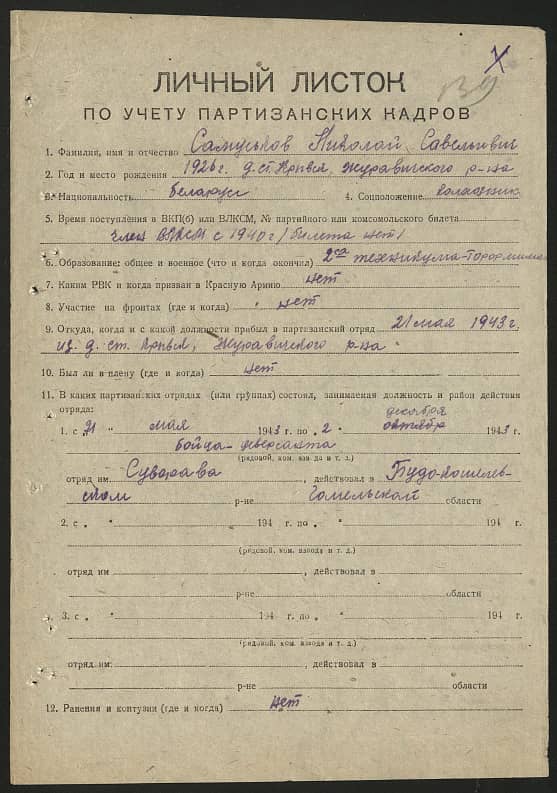 139
ЛИЧНЫЙ ЛИСТОК
ПО УЧЕТУ ПАРТИЗАНСКИХ КАДРОВ
1. Фамилия, имя и отчество Самуськов Николай Савельевич
2. Год и место рождения 1926 г. д. ст. Кривск, Журавичского р-на
3. Национальность беларус 4. Соцположение колхозник
5. Время поступления в ВКП(б) или ВЛКСМ, № партийного или комсомольского билета
член ВЛКСМ с 1940 г (билета нет)
6. Образование: общее и военное (что и когда окончил) 2 техникума
7. Каким РВК и когда призван в Красную Армию нет
8. Участие на фронтах (где и когда) нет
9. Откуда, когда и с какой должности прибыл в партизанский отряд 21 мая 1943 г.
из д. ст. Кривск, Журавичского р-на
10. Был ли в плену (где и когда) нет
11. В каких партизанских отрядах (или группах) состоял, занимаемая должность и район действия
отряда:
декабря
1. с „21 " мая 1943 г. по „2 " октября 1943 г.
бойца-диверсанта
(рядовой, ком. взвода и т. д.)
отряд им. Суворава, действовал в Будо-Кошелев-
ском р-не Гомельской области
2. с „ " 194 г. по „ " 194 г.
(рядовой, ком. взвода и т. д.)
отряд им , действовал в
р-не области
3. с „ " 194 г. по „ " 194 г.
(рядовой, ком. взвода и т. д.)
отряд им. , действовал в
р-не области
12. Ранения и контузии (где и когда) нет